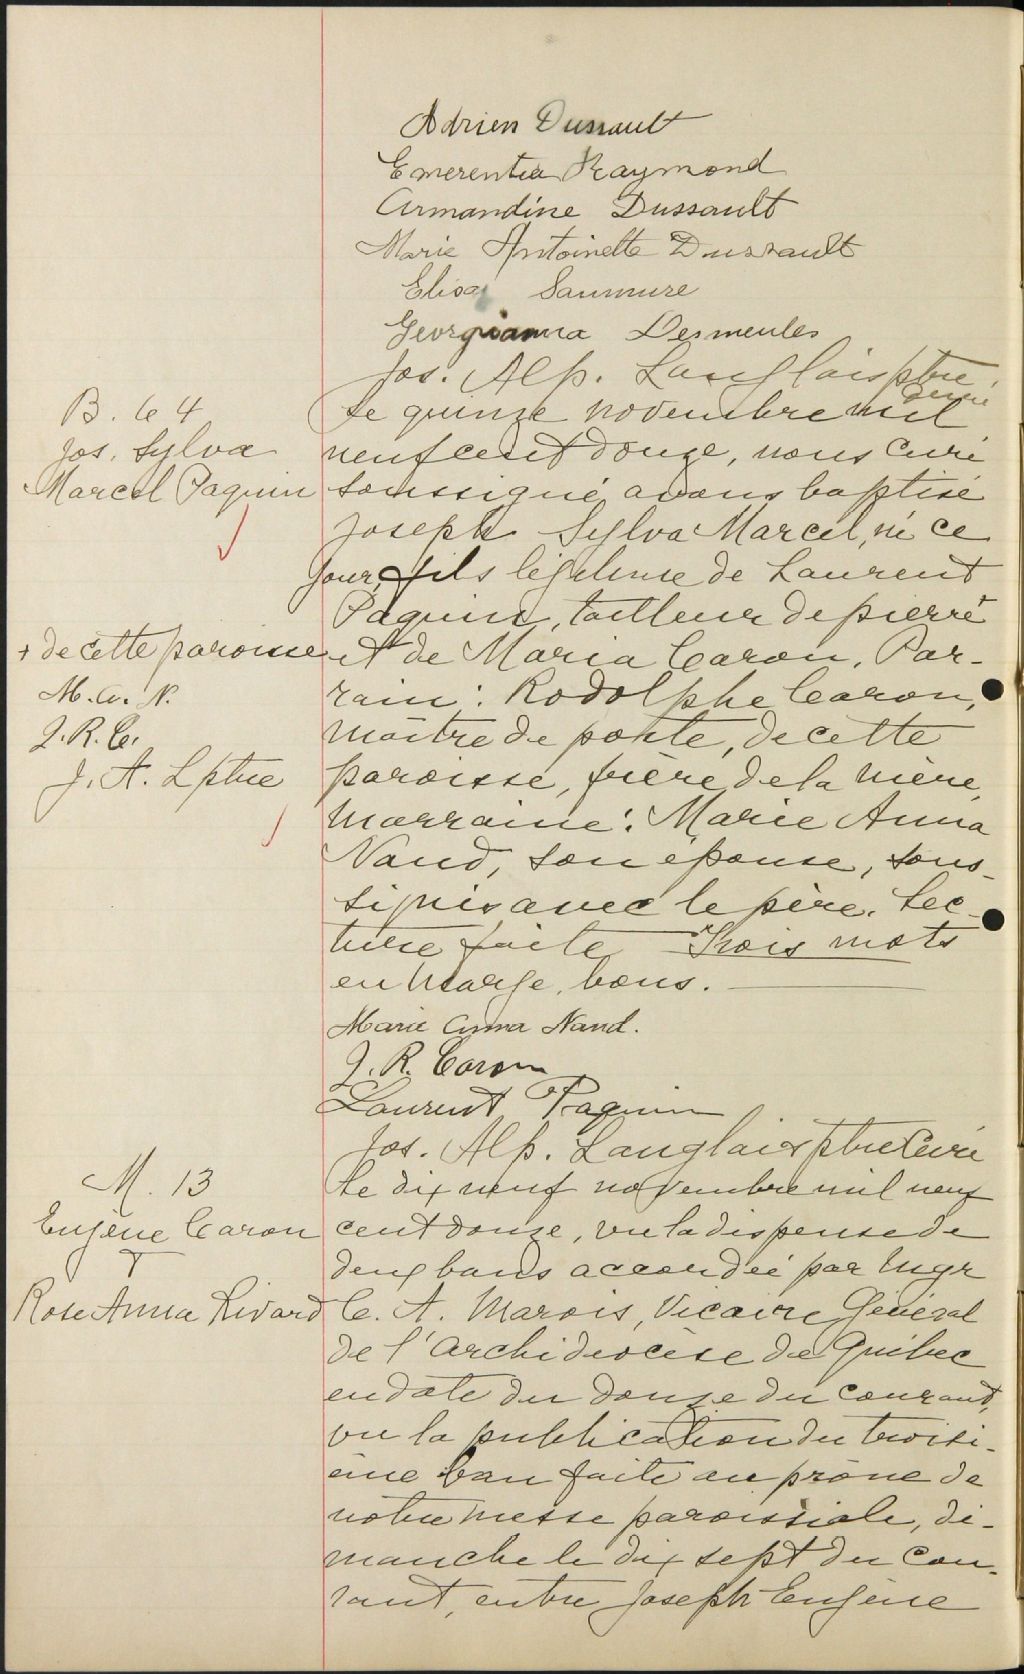 Adrien Dussault
Emerentia Raymond
Armandine Dussault
Marie Antoinette Dussault
Elisa Saumure
Georgianna Desmeules
Jos. Alp. Langlais ptre
B. 64
Jos. Sylva
Marcel Paquin
Le quinze novembre mil
neuf cent douze, nous curé
soussigné avons baptisé
Joseph Sylva Marcel, né ce
jour, fils légitime de Laurent
Paquin, tailleur de pierre +
+ de cette paroisse
M. A. N.
J. R. C.
J. A. L ptre
et de Maria Caron. Par-
rain: Rodolphe Caron,
maître de poste, de cette
paroisse, frère de la mère,
marraine: Marie Anna
Naud, son épouse, sous-
signés avec le père. Lec-
ture faite Trois mots
en marge, bons.
Marie Anna Naud.
J. R. Caron
Laurent Paquin
Jos. Alp. Langlais ptre Curé
M. 13
Eugène Caron
Rose Anna Rivard
Le dix neuf novembre mil neuf
cent douze, vu la dispense de
deux bans accordée par Mgr
C. A. Marois, Vicaire Général
de l'Archidiocèse de Québec
en date du douze du courant,
vu la publication du troisi-
ème ban faite au prône de
notre messe paroissiale, di-
manche le dix sept du cou-
rant, entre Joseph Eugène